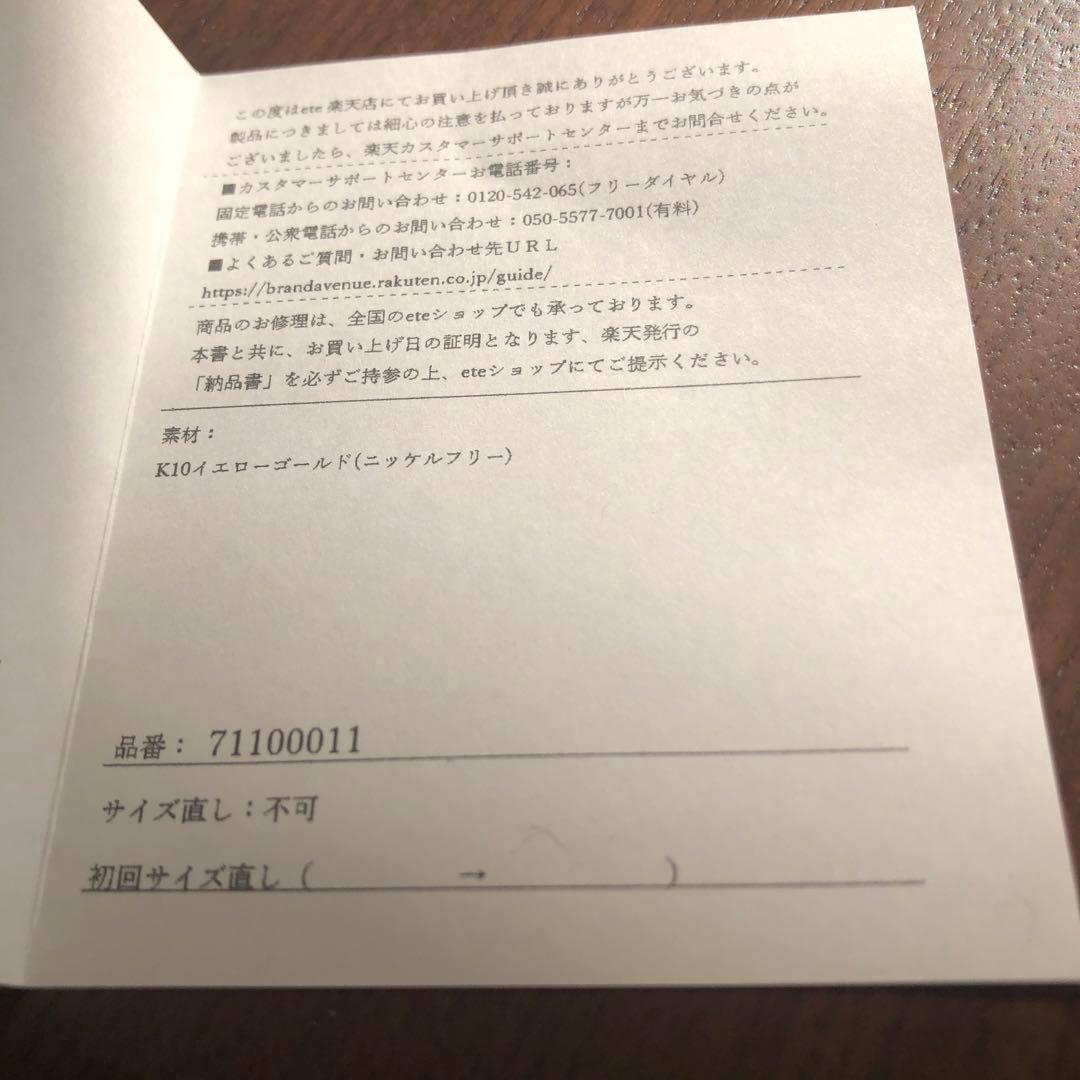 この度はete 楽天店にてお買い上げ頂き誠にありがとうございます。
製品につきましては細心の注意を払っておりますが万一お気づきの点が
ございましたら、楽天カスタマーサポートセンターまでお問合せください。
■カスタマーサポートセンターお電話番号：
固定電話からのお問い合わせ：0120-542-065(フリーダイヤル)
携帯・公衆電話からのお問い合わせ：050-5577-7001(有料)
■よくあるご質問・お問い合わせ先ＵＲＬ
https://brandavenue.rakuten.co.jp/guide/
商品のお修理は、全国のeteショップでも承っております。
本書と共に、お買い上げ日の証明となります、楽天発行の
「納品書」を必ずご持参の上、eteショップにてご提示ください。
素材：
K10イエローゴールド(ニッケルフリー)
品番： 71100011
サイズ直し：不可
初回サイズ直し（　　　　→　　　　　）